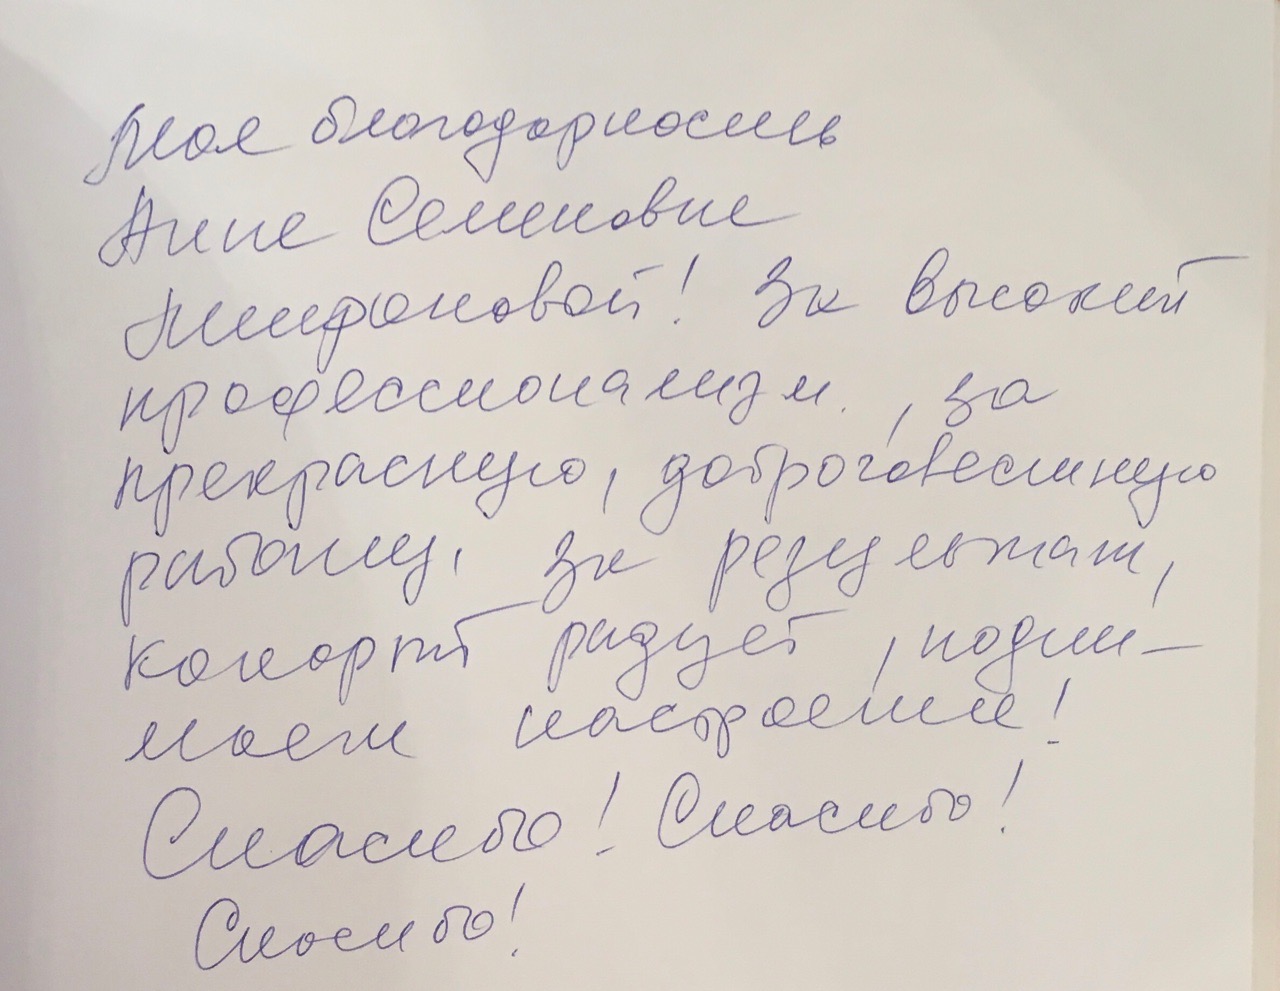 Моя благодарность
Анне Семеновне
Тимофоновой! За высокий
профессионализм, за
прекрасную, добросовестную
работу, за результат,
который радует, подни-
мает настроение!
Спасибо! Спасибо!
Спасибо!